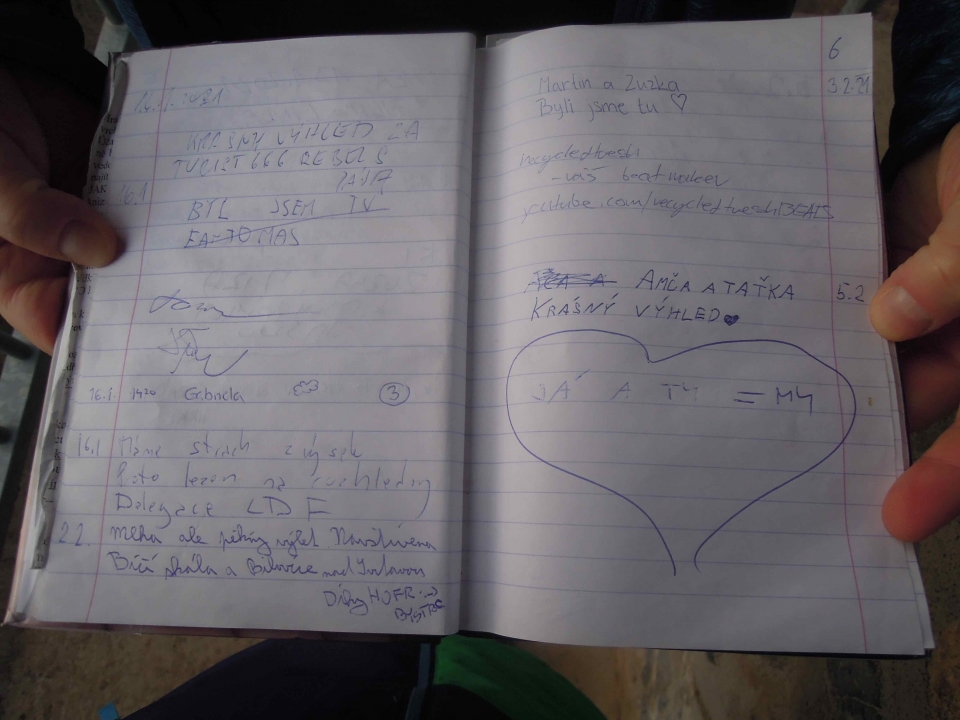 KRÁSNÝ VÝHLED ZA
TURIST 666 REBELS
16.1
BYL JSEM TU
16.1 1420 Gabriela 3
16.1 Máme strach z výšek
Proto lezem na rozhledny
Delegace LDF
2.2. Mlha ale pěkný výlet Navštívena
Býčí skála a Bílovice nad Svitavou
Díky HOFR :-)
6
Martin a Zuzka 3.2.21
Byli jsme tu ♡
recycledtweshi
- váš beatmaker
youtube.com/recycledtweshiBEATS
AMČA A TAŤKA 5.2
KRÁSNÝ VÝHLED
JÁ A TY = MY